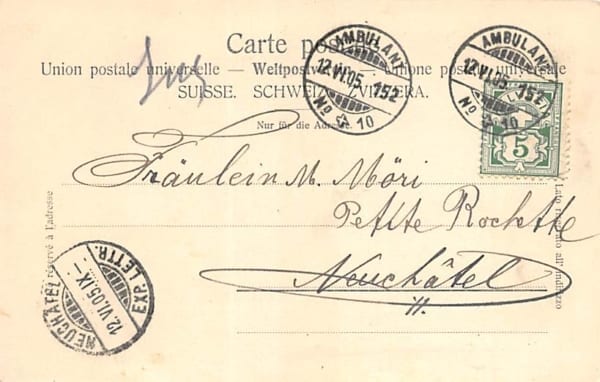 Carte postale
Union postale universelle — Weltpostverein — Unione postale universale
SUISSE. SCHWEIZ. SVIZZERA.
Nur für die Adresse
AMBULANT
12.VI.05. 152
No 10
AMBULANT
12.VI.05. 152
No 10
5
Fräulein M. Möri
Petite Rochette
Neuchâtel
Côté réservé à l'adresse
Lato riservato all'indirizzo
NEUCHÂTEL
12.VI.05.IX-
EXP. LETTR.